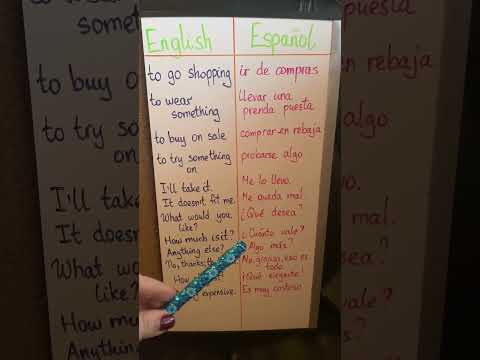 English Español
to go shopping ir de compras
to wear something llevar una prenda puesta
to buy on sale comprar en rebaja
to try something on probarse algo
I'll take it. Me lo llevo.
It doesn't fit me. Me queda mal.
What would you like? ¿Qué desea?
How much is it? ¿Cuánto vale?
Anything else? ¿Algo más?
No, thanks, No, gracias, eso es todo
¡Qué elegante!
expensive. Es muy costoso
to buy
to try
on
I'll take
It doesn't
What wou
like?
How much
Anything
en rebaja
algo
llevo.
mal.